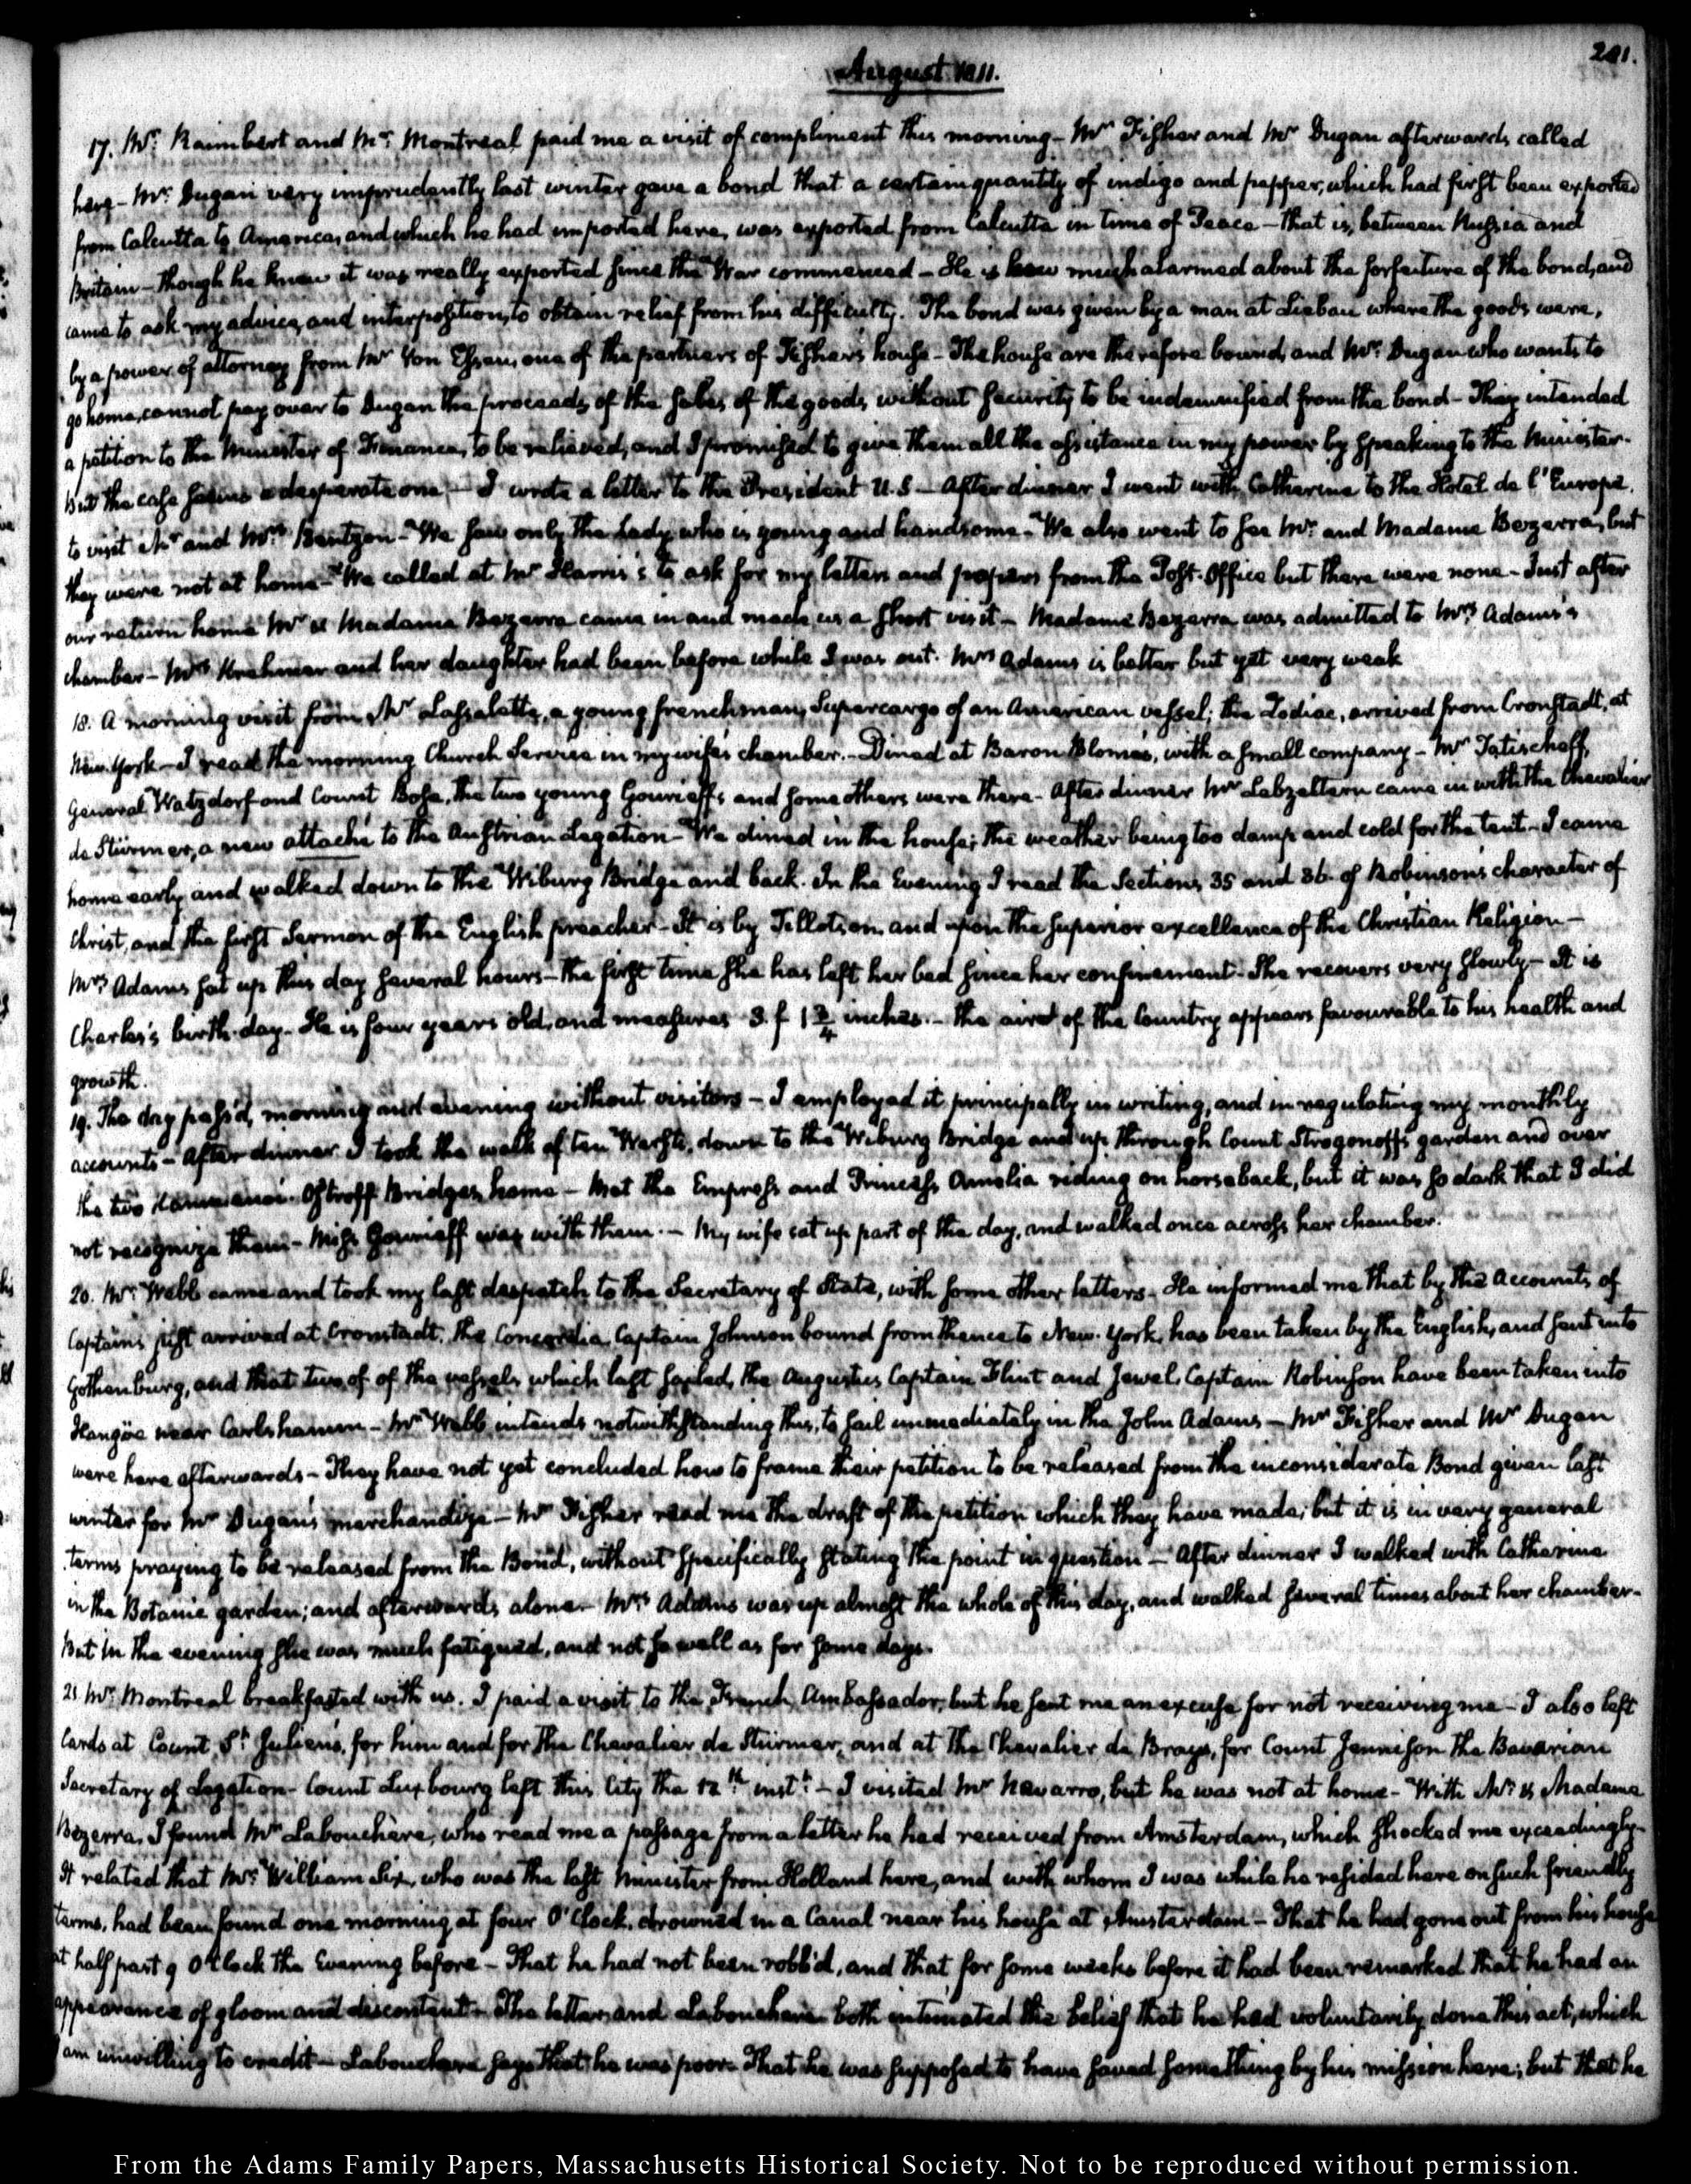 August 1811.
201.
17. Mr. Raimbert and Mr. Montreal paid me a visit of compliment this morning — Mr Fisher and Mr Dugan afterwards called
here — Mr. Dugan very imprudently last winter gave a bond that a certain quantity of indigo and pepper, which had first been exported
from Calcutta to America, and which he had imported here, was exported from Calcutta in time of Peace — that is, between Russia and
Britain — though he knew it was really exported since the War commenced — He is now much alarmed about the forfeiture of the bond, and
came to ask my advice, and interposition, to obtain relief from his difficulty. The bond was given by a man at Liebau where the goods were,
by a power of attorney from Mr Von Essen, one of the partners of Fisher's house — The house are therefore bound, and Mr. Dugan who wants to
go home, cannot pay over to Dugan the proceeds of the sales of the goods, without security to be indemnified from the bond — They intended
a petition to the Minister of Finances, to be relieved, and I promised to give them all the assistance in my power by speaking to the Minister —
But the case seems a desperate one — I wrote a letter to the President U.S — After dinner I went with Catherine to the Hotel de l'Europe,
to visit Mr and Mrs Bentzon — We saw only the Lady who is young and handsome — We also went to see Mr. and Madame Bezerra, but
they were not at home — We called at Mr Harris's to ask for my letters and papers from the Post-Office but there were none — Just after
our return home Mr & Madame Bezerra came in and made us a short visit — Madame Bezerra was admitted to Mrs Adams's
chamber — Mrs Krehmer and her daughter had been before while I was out. Mrs Adams is better but yet very weak
18. A morning visit from Mr Lassalatte, a young frenchman, Supercargo of an American vessel; the Zodiac, arrived from Cronstadt, at
New-York — I read the morning Church Service in my wife's chamber. — Dined at Baron Blome's, with a small company — Mr Tatischeff,
General Watzdorf and Count Bose, the two young Gourieffs and some others were there — After dinner Mr Lebzeltern came in with the Chevalier
de Stürmer, a new attaché to the Austrian Legation — We dined in the house; the weather being too damp and cold for the tent — I came
home early and walked down to the Wiburg Bridge and back. In the Evening I read the Sections, 35 and 36 of Robinson's character of
Christ, and the first Sermon of the English preacher — It is by Tillotson, and upon the superior excellence of the Christian Religion —
Mrs Adams sat up this day several hours — the first time she has left her bed since her confinement — She recovers very slowly — It is
Charles's birth-day — He is four years old, and measures 3. f 1 3/4 inches. — The air of the Country appears favourable to his health and
growth.
19. The day pass'd, morning and evening without visitors — I employed it principally in writing, and in regulating my monthly
accounts — After dinner I took the walk of ten Wersts, down to the Wiburg Bridge and up through Count Strogonoff's garden and over
the two Kamenoi-Ostroff Bridges, home — Met the Empress and Princess Amelia riding on horseback, but it was so dark that I did
not recognize them — Miss Gourieff was with them. — My wife sat up part of the day, and walked once across her chamber.
20. Mr. Webb came and took my last despatch to the Secretary of State, with some other letters — He informed me that by the Accounts of
Captains just arrived at Cronstadt, the Concordia, Captain Johnson bound from thence to New-York, has been taken by the English, and sent into
Gothenburg, and that two of of the vessels which last sailed, the Augustus Captain Flint and Jewel, Captain Robinson have been taken into
Hangöe near Carlshamm — Mr Webb intends notwithstanding this, to sail immediately in the John Adams — Mr Fisher and Mr Dugan
were here afterwards — They have not yet concluded how to frame their petition to be released from the inconsiderate Bond given last
winter for Mr Dugan's merchandize — Mr Fisher read me the draft of the petition which they have made; but it is in very general
terms praying to be released from the Bond, without specifically stating the point in question — After dinner I walked with Catherine
in the Botanic garden; and afterwards alone — Mrs Adams was up almost the whole of this day, and walked several times about her chamber —
But in the evening she was much fatigued, and not so well as for some days.
21 Mr. Montreal breakfasted with us. I paid a visit to the French Ambassador, but he sent me an excuse for not receiving me — I also left
Cards at Count St Julien's, for him and for the Chevalier de Stürmer, and at the Chevalier de Bray's, for Count Jennison the Bavarian
Secretary of Legation — Count Luxbourg left this City the 12th inst. — I visited Mr Navarro, but he was not at home — With Mr & Madame
Bezerra, I found Mr Labouchere, who read me a passage from a letter he had received from Amsterdam, which shocked me exceedingly —
It related that Mr. William Six, who was the last Minister from Holland here, and with whom I was while he resided here on such friendly
terms, had been found one morning at four O'Clock, drowned in a Canal near his house at Amsterdam — That he had gone out from his house
at half past 9 O'Clock the Evening before — That he had not been robb'd, and that for some weeks before it had been remarked that he had an
appearance of gloom and discontent — The letter, and Labouchere both intimated the belief that he had voluntarily done this act, which
I am unwilling to credit — Labouchere says that he was poor — That he was supposed to have saved something by his mission here; but that he
From the Adams Family Papers, Massachusetts Historical Society. Not to be reproduced without permission.